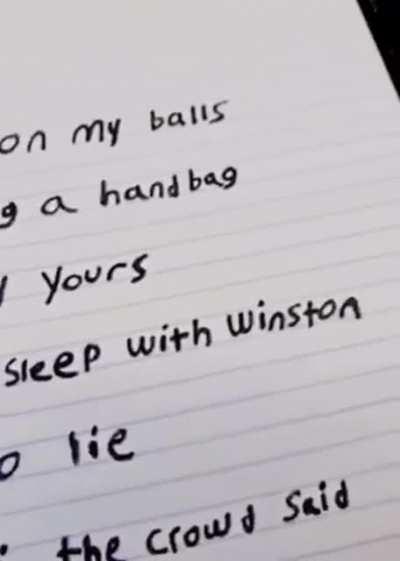 on my balls
g a handbag
yours
sleep with winston
o lie
the crowd said